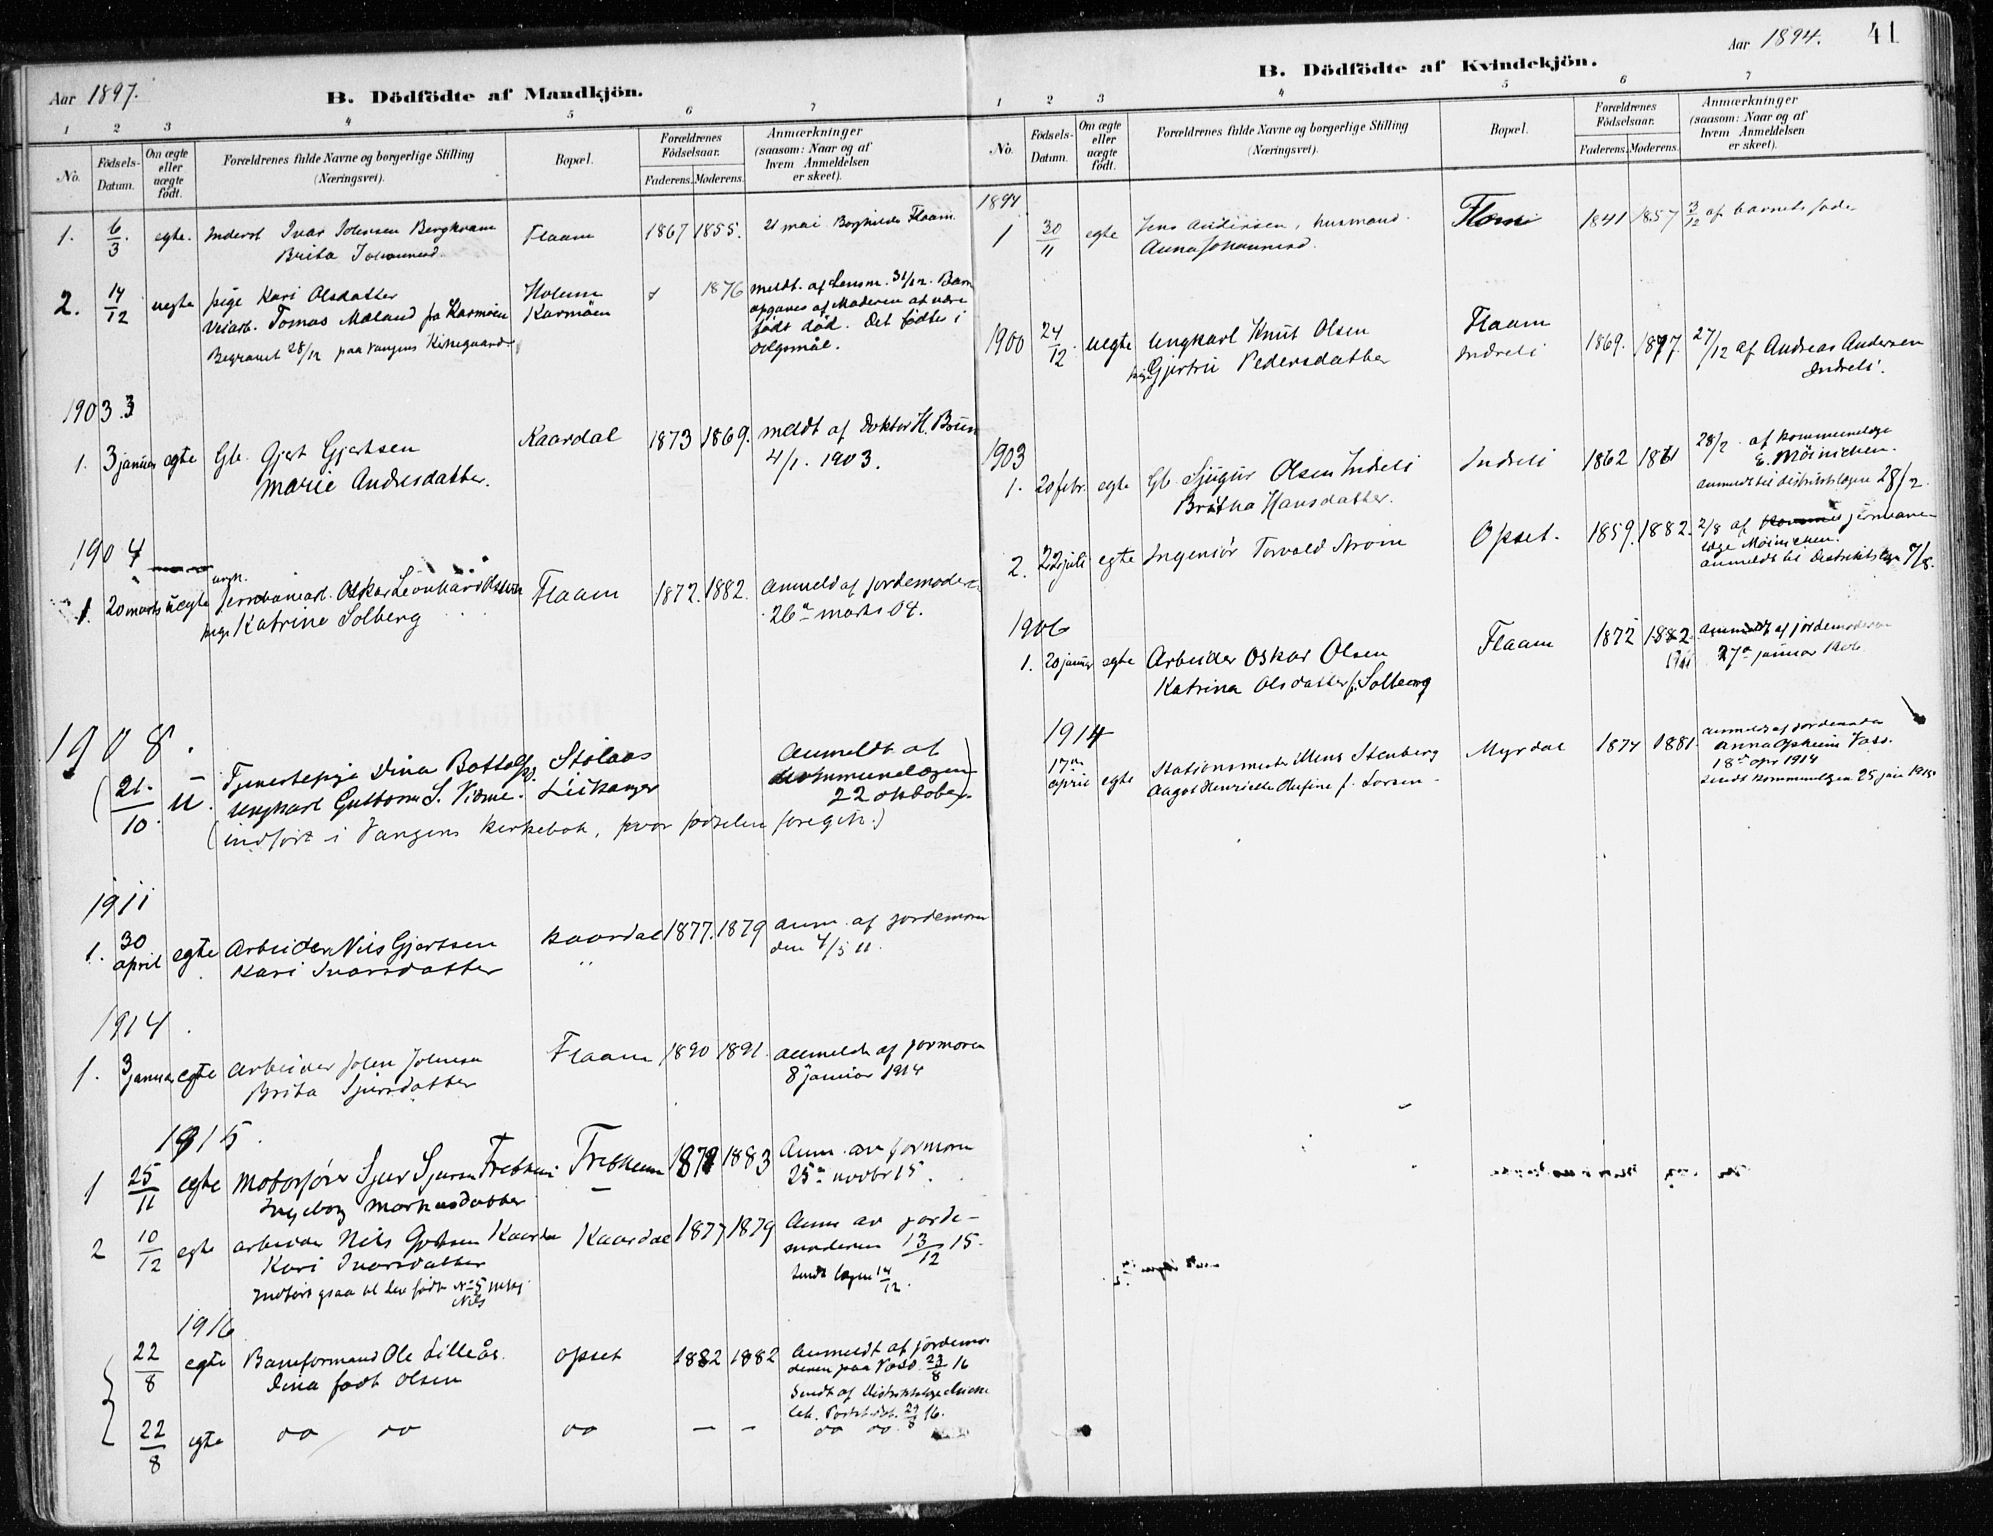 Aar 1897.
B. Dödfödte af Mandkjön.
1 2 3 4 5 6 7
No.
Födsels-Datum.
Om ægte eller uægte födt.
Forældrenes fulde Navne og borgerlige Stilling (Næringsvei).
Bopæl.
Forældrenes Fødselsaar.
Faderens. Moderens.
Anmærkninger (saasom: Naar og af hvem Anmeldelsen er skeet).
1. 6/3 egte. Inderst Ivar Johnsen Berg Flaam 1867 1855. 21 mai Flaam
Brita
2. 14/12 uegte pige Kari Olsdatter 1876 meldt af Lensm. 31/12. Barn
Tomas Mæland fra Karmöen Karmöen opgaves af Moderen at være
født död. Det födtes i
Begravet 28/12 paa Vangens Kirkegaard dølgsmål.
1903
1. 3 januar egte Gb. Gjert Gjertsen Kaardal 1873 1869. meldt af Doktor H. Bruun
Marie Andresdatter. 4/1. 1903.
1904
1. 20 marts uegte ungk. Jernbanearb. Oskar Leonhard Olsen Flaam 1872. 1882. anmeld af jordemoder
pige Katrine Solberg 26de marts 04.
1908.
(21./10. u. Tjenestepige Dina Stølaas Anmeldt af
ungkarl Guttorm S. Leikanger kommunelægen
22 oktober)
(indført i Vangens kirkebok, hvor fødselen foregik.)
1911
1. 30 april egte Arbeider Nils Gjertsen Kaardal 1877. 1879 anm. af jordemoren
Kari Ivarsdatter " den 4/5 11.
1914
1. 3 januar egte Arbeider John Johnsen Flaam 1890 1891. anmeldt af jormoren
Brita Sjursdatter 8 januar 1914
1915.
1 25/11 egte Motorfører Sjur Sjursen Fretheim Fretheim 1883 Anm. av jormoren
Ingeborg Markusdatter 25de novbr 15.
2 10/12 egte arbeider Nils Gjertsen Kaardal Kaardal 1877 1879 Anm av jorde-
Kari Ivarsdatter moderen 13/12 15.
Sendt lægen 14/12.
Nils
1916
22/8 egte Baneformand Ole Lilleås. Opset 1882 1882 Anmeldt af jordemo-
Dina født Olsen deren paa Voss. 23/8 16
Sendt af Distriktslæge
22/8 egte do do do — — do do
Aar 1894. 41
B. Dödfödte af Kvindekjön.
1 2 3 4 5 6 7
No.
Födsels-Datum.
Om ægte eller uægte födt.
Forældrenes fulde Navne og borgerlige Stilling (Næringsvei).
Bopæl.
Forældrenes Födselsaar.
Faderens. Moderens.
Anmærkninger (saasom: Naar og af hvem Anmeldelsen er skeet).
1894
1 30/11 egte Jens Andersen, husmand. 1841 1857 3/12 af barnets fader
Anna Johannesd.
1900 24/12 uegte Ungkarl Knut Olsen Flaam 1869. 1877. 27/12 af Andreas Andersen
pige Gjertru Pedersdatter Indreli Indreli.
1903
1. 20 febr. egte Gb. Sjugur Olsen Indreli Indreli 1862 28/2 af kommunelæge
Britha Hansdatter. E. Möinichen.
anmeldt til distriktslægen 28/2.
2. 22 juli egte Ingeniör Torvald Strøm Opset. 1859. 1882. 2/8 af jernbane-
læge Möinichen.
anmeldt til Distriktslægen 7/8.
1906
1. 20 januar egte Arbeider Oskar Olsen Flaam 1872 1882 anmeldt af jordemoderen
Katrina Olsdatter f. Solberg 27de januar 1906.
1914
17de april egte Stationsmester Mons Stenberg Myrdal 1874 1881. anmeldt af jordemoder
Aagot Henriette f. Larsen Anna Opheim Voss.
18de apr 1914
Sendt kommunelægen 25 jan 1915